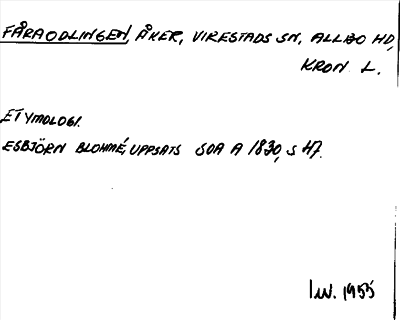 FÅRAODLINGEN, ÅKER, VIRESTADS SN, ALLBO HD,
KRON L.
ETYMOLOGI.
ESBJÖRN BLOHMÉ, UPPSATS SOA A 1830, S 47.
1955